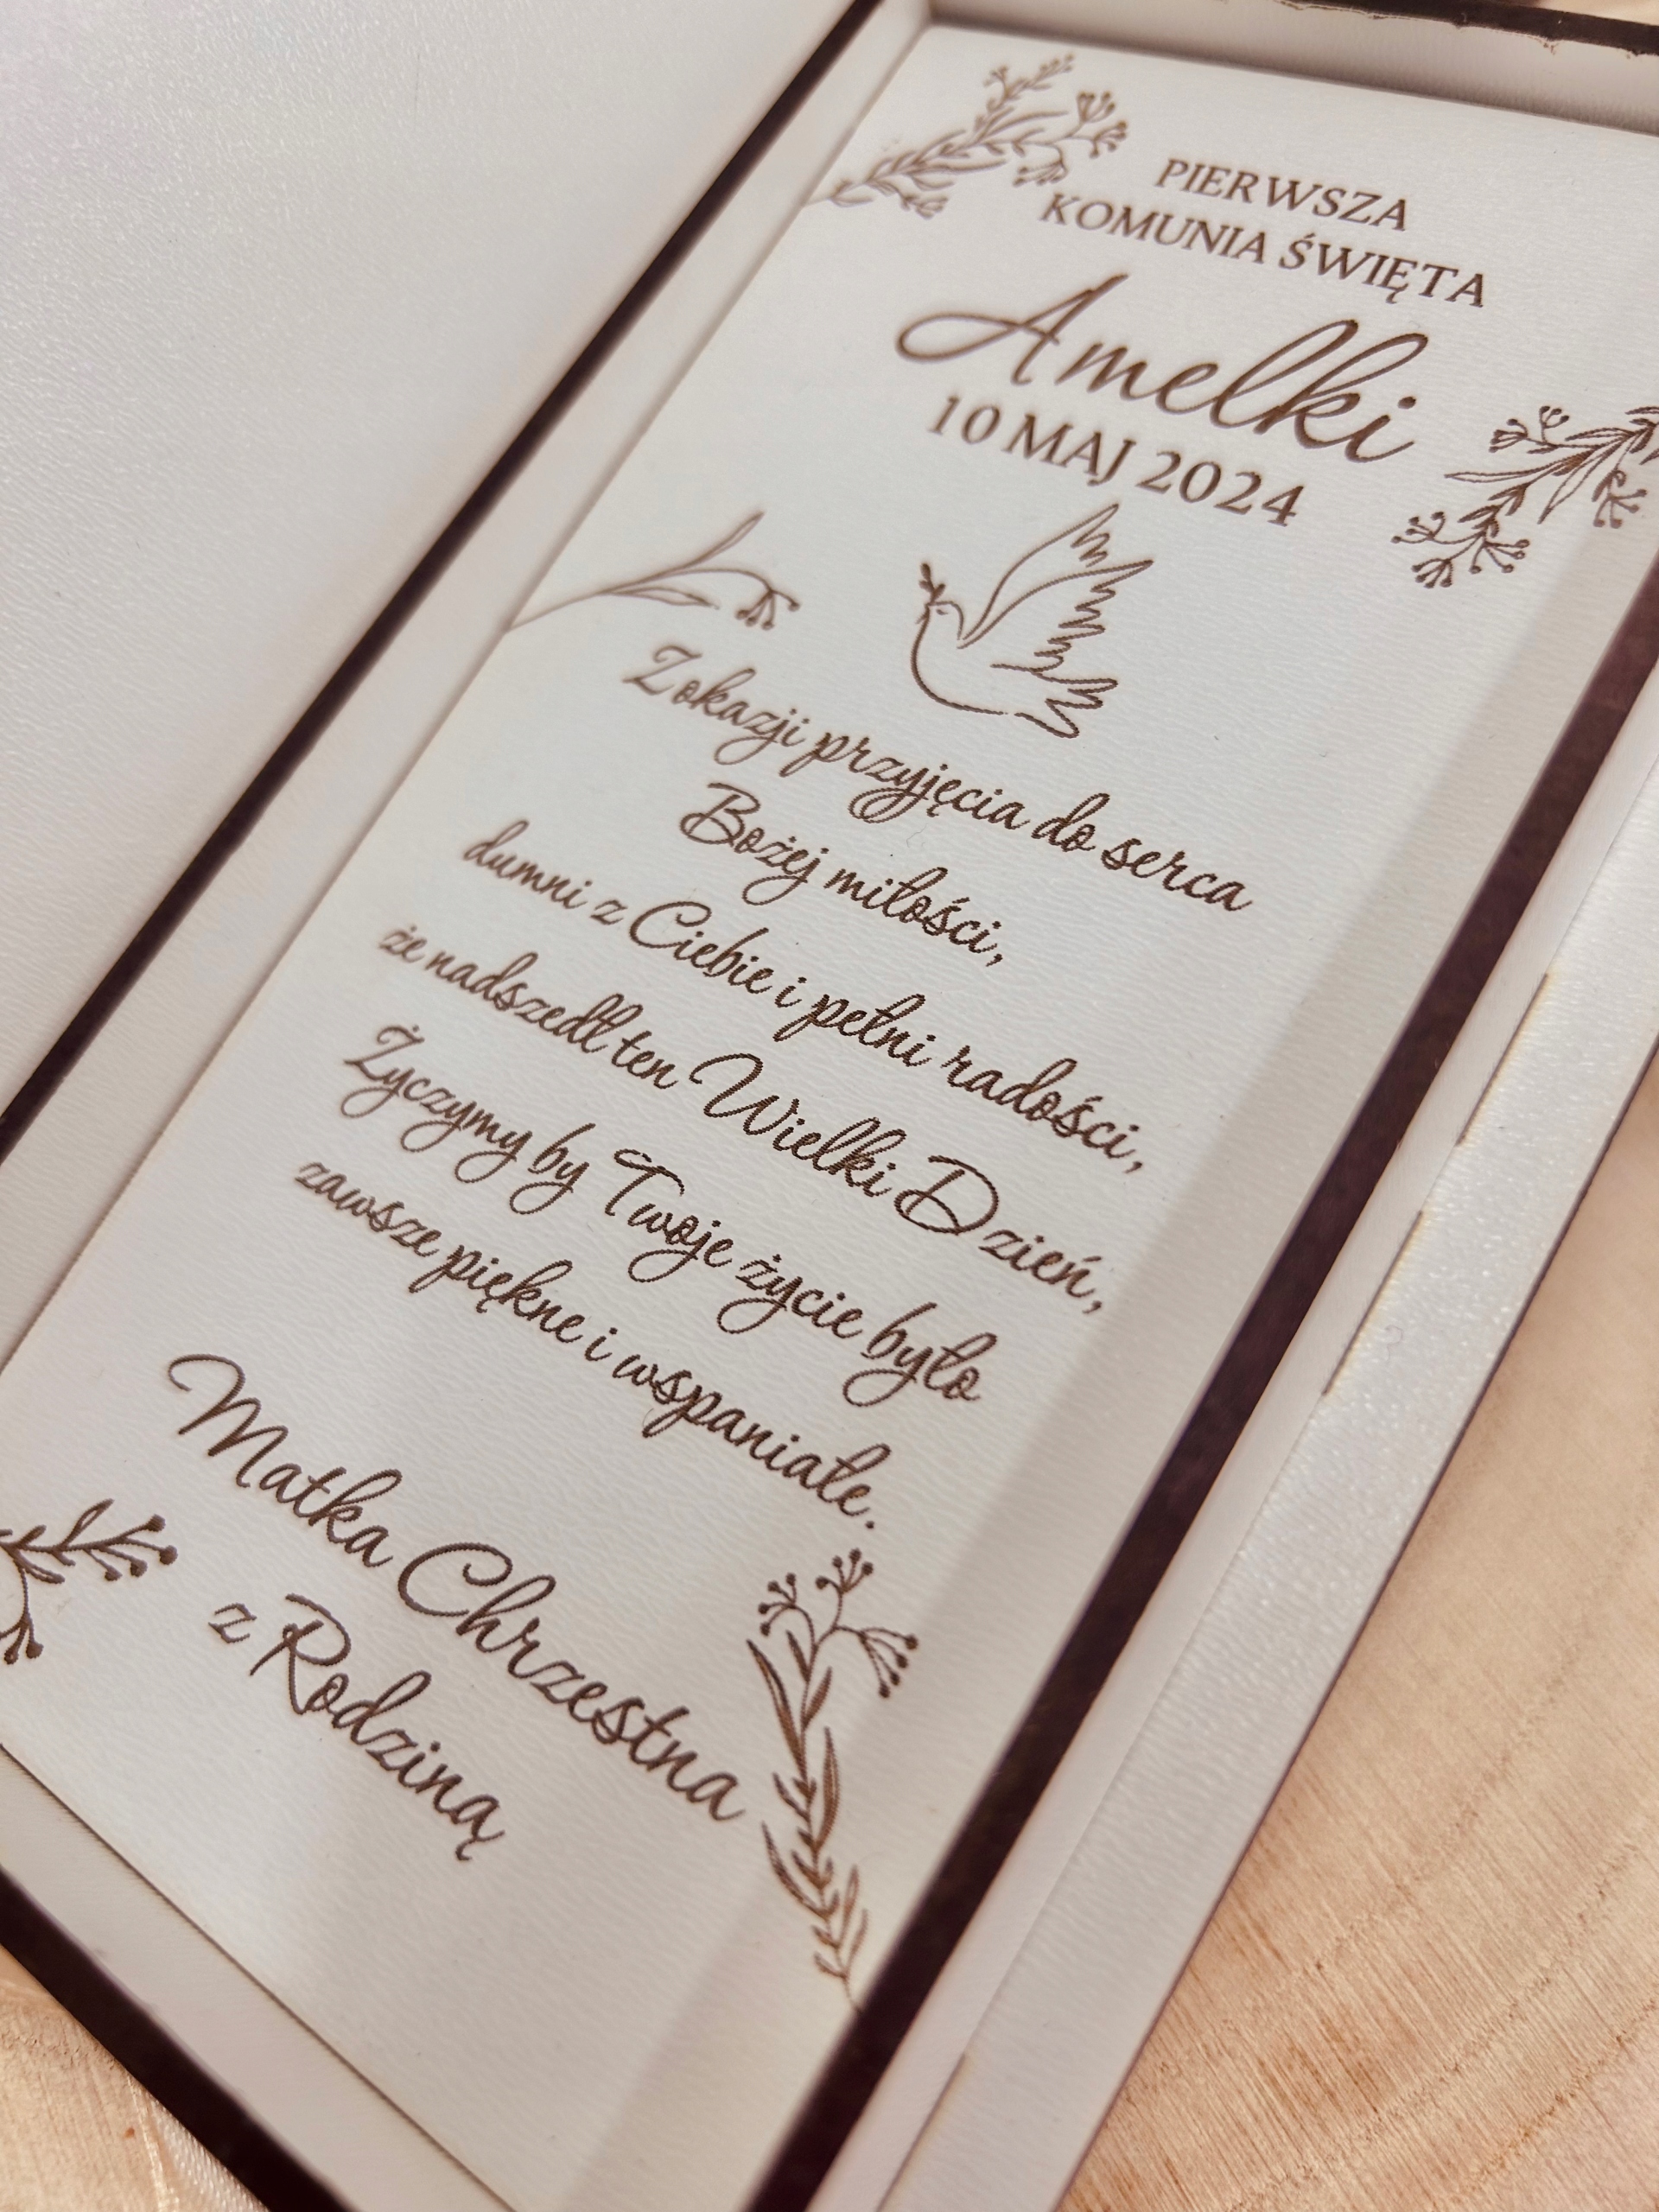 PIERWSZA
KOMUNIA ŚWIĘTA
Amelki
10 MAJ 2024
Z okazji przyjęcia do serca
Bożej miłości,
dumni z Ciebie i pełni radości,
że nadszedł ten Wielki Dzień,
Życzymy by Twoje życie było
zawsze piękne i wspaniałe.
Matka Chrzestna
z Rodziną